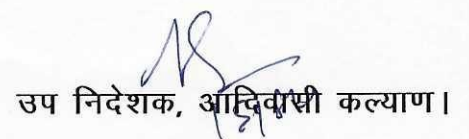 उप निदेशक, आदिवासी कल्याण।